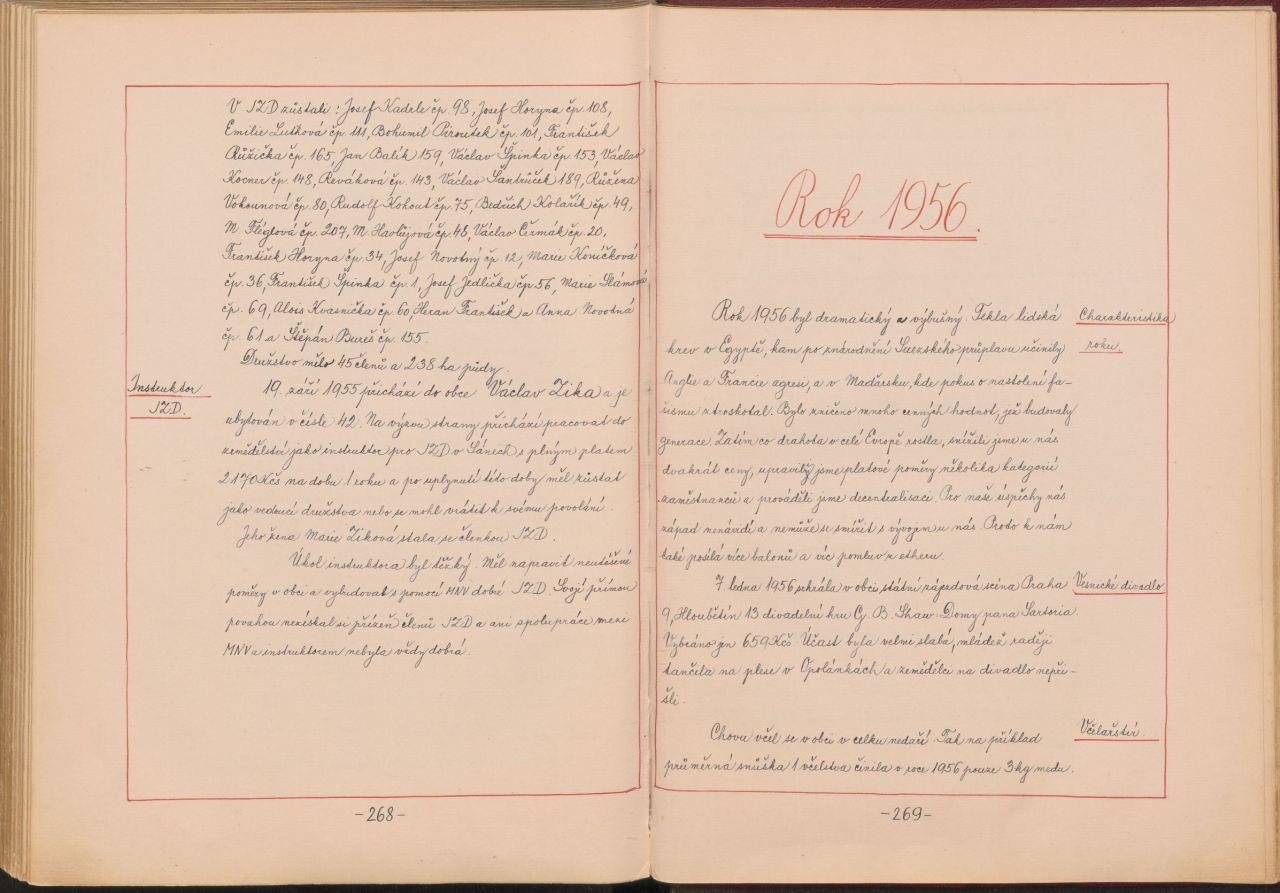 V JZD zůstali: Josef Kadrle čp. 98, Josef Horyna čp. 108,
Emilie Lutková čp. 111, Bohumil Piroutek čp. 101, František
Růžička čp. 165, Jan Balík 159, Václav Špinka čp. 153, Václav
Kocner čp. 148, Reváková čp. 143, Václav Šantrůček 189, Růžena
Vokounová čp. 80, Rudolf Kohout čp. 75, Bedřich Kolařík čp. 49,
M. Fléglová čp. 207, M. Havlujová čp. 48, Václav Čermák čp. 20,
František Horyna čp. 34, Josef Novotný čp. 12, Marie Koníčková
čp. 36, František Špinka čp. 1, Josef Jedlička čp. 56, Marie Slámová
čp. 69, Alois Kvasnička čp. 60, Heran František a Anna Novotná
čp. 61 a Štěpán Bureš čp. 155.
Družstvo mělo 45 členů a 238 ha půdy.
Instruktor
JZD.
19. září 1955 přichází do obce Václav Zika a je
ubytován v čísle 42. Na výzvu strany přichází pracovat do
zemědělství jako instruktor pro JZD v Sánech s plným platem
2170 Kčs na dobu 1 roku a po uplynutí této doby měl zůstat
jako vedoucí družstva nebo se mohl vrátit k svému povolání.
Jeho žena Marie Ziková stala se členkou JZD.
Úkol instruktora byl těžký. Měl napravit neutěšené
poměry v obci a vybudovat s pomocí MNV dobré JZD. Svojí přímou
povahou nezískal si přízeň členů JZD a ani spolupráce mezi
MNV a instruktorem nebyla vždy dobrá.
-268-
Rok 1956.
Charakteristika
roku.
Rok 1956 byl dramatický a výbušný. Tekla lidská
krev v Egyptě, kam po znárodnění Suezského průplavu učinily
Anglie a Francie agresi, a v Maďarsku, kde pokus o nastolení fa-
šismu ztroskotal. Bylo zničeno mnoho cenných hodnot, jež budovaly
generace. Zatím co drahota v celé Evropě rostla, snížili jsme u nás
dvakrát ceny, upravily jsme platové poměry několika kategorií
zaměstnanců a prováděli jsme decentralisaci. Pro naše úspěchy nás
západ nenávidí a nemůže se smířit s vývojem u nás. Proto k nám
také posílá více balonů a víc pomluv z etheru.
Vesnické divadlo
7. ledna 1956 sehrála v obci státní zájezdová scéna Praha
9, Hloubětín 13 divadelní hru G. B. Shaw: Domy pana Sartoria.
Vybráno jen 659 Kčs. Účast byla velmi slabá, mládež raději
tančila na plese v Opolánkách a zemědělci na divadlo nepři-
šli.
Včelařství.
Chovu včel se v obci v celku nedaří. Tak na příklad
průměrná snůška 1 včelstva činila v roce 1956 pouze 3 kg medu.
-269-